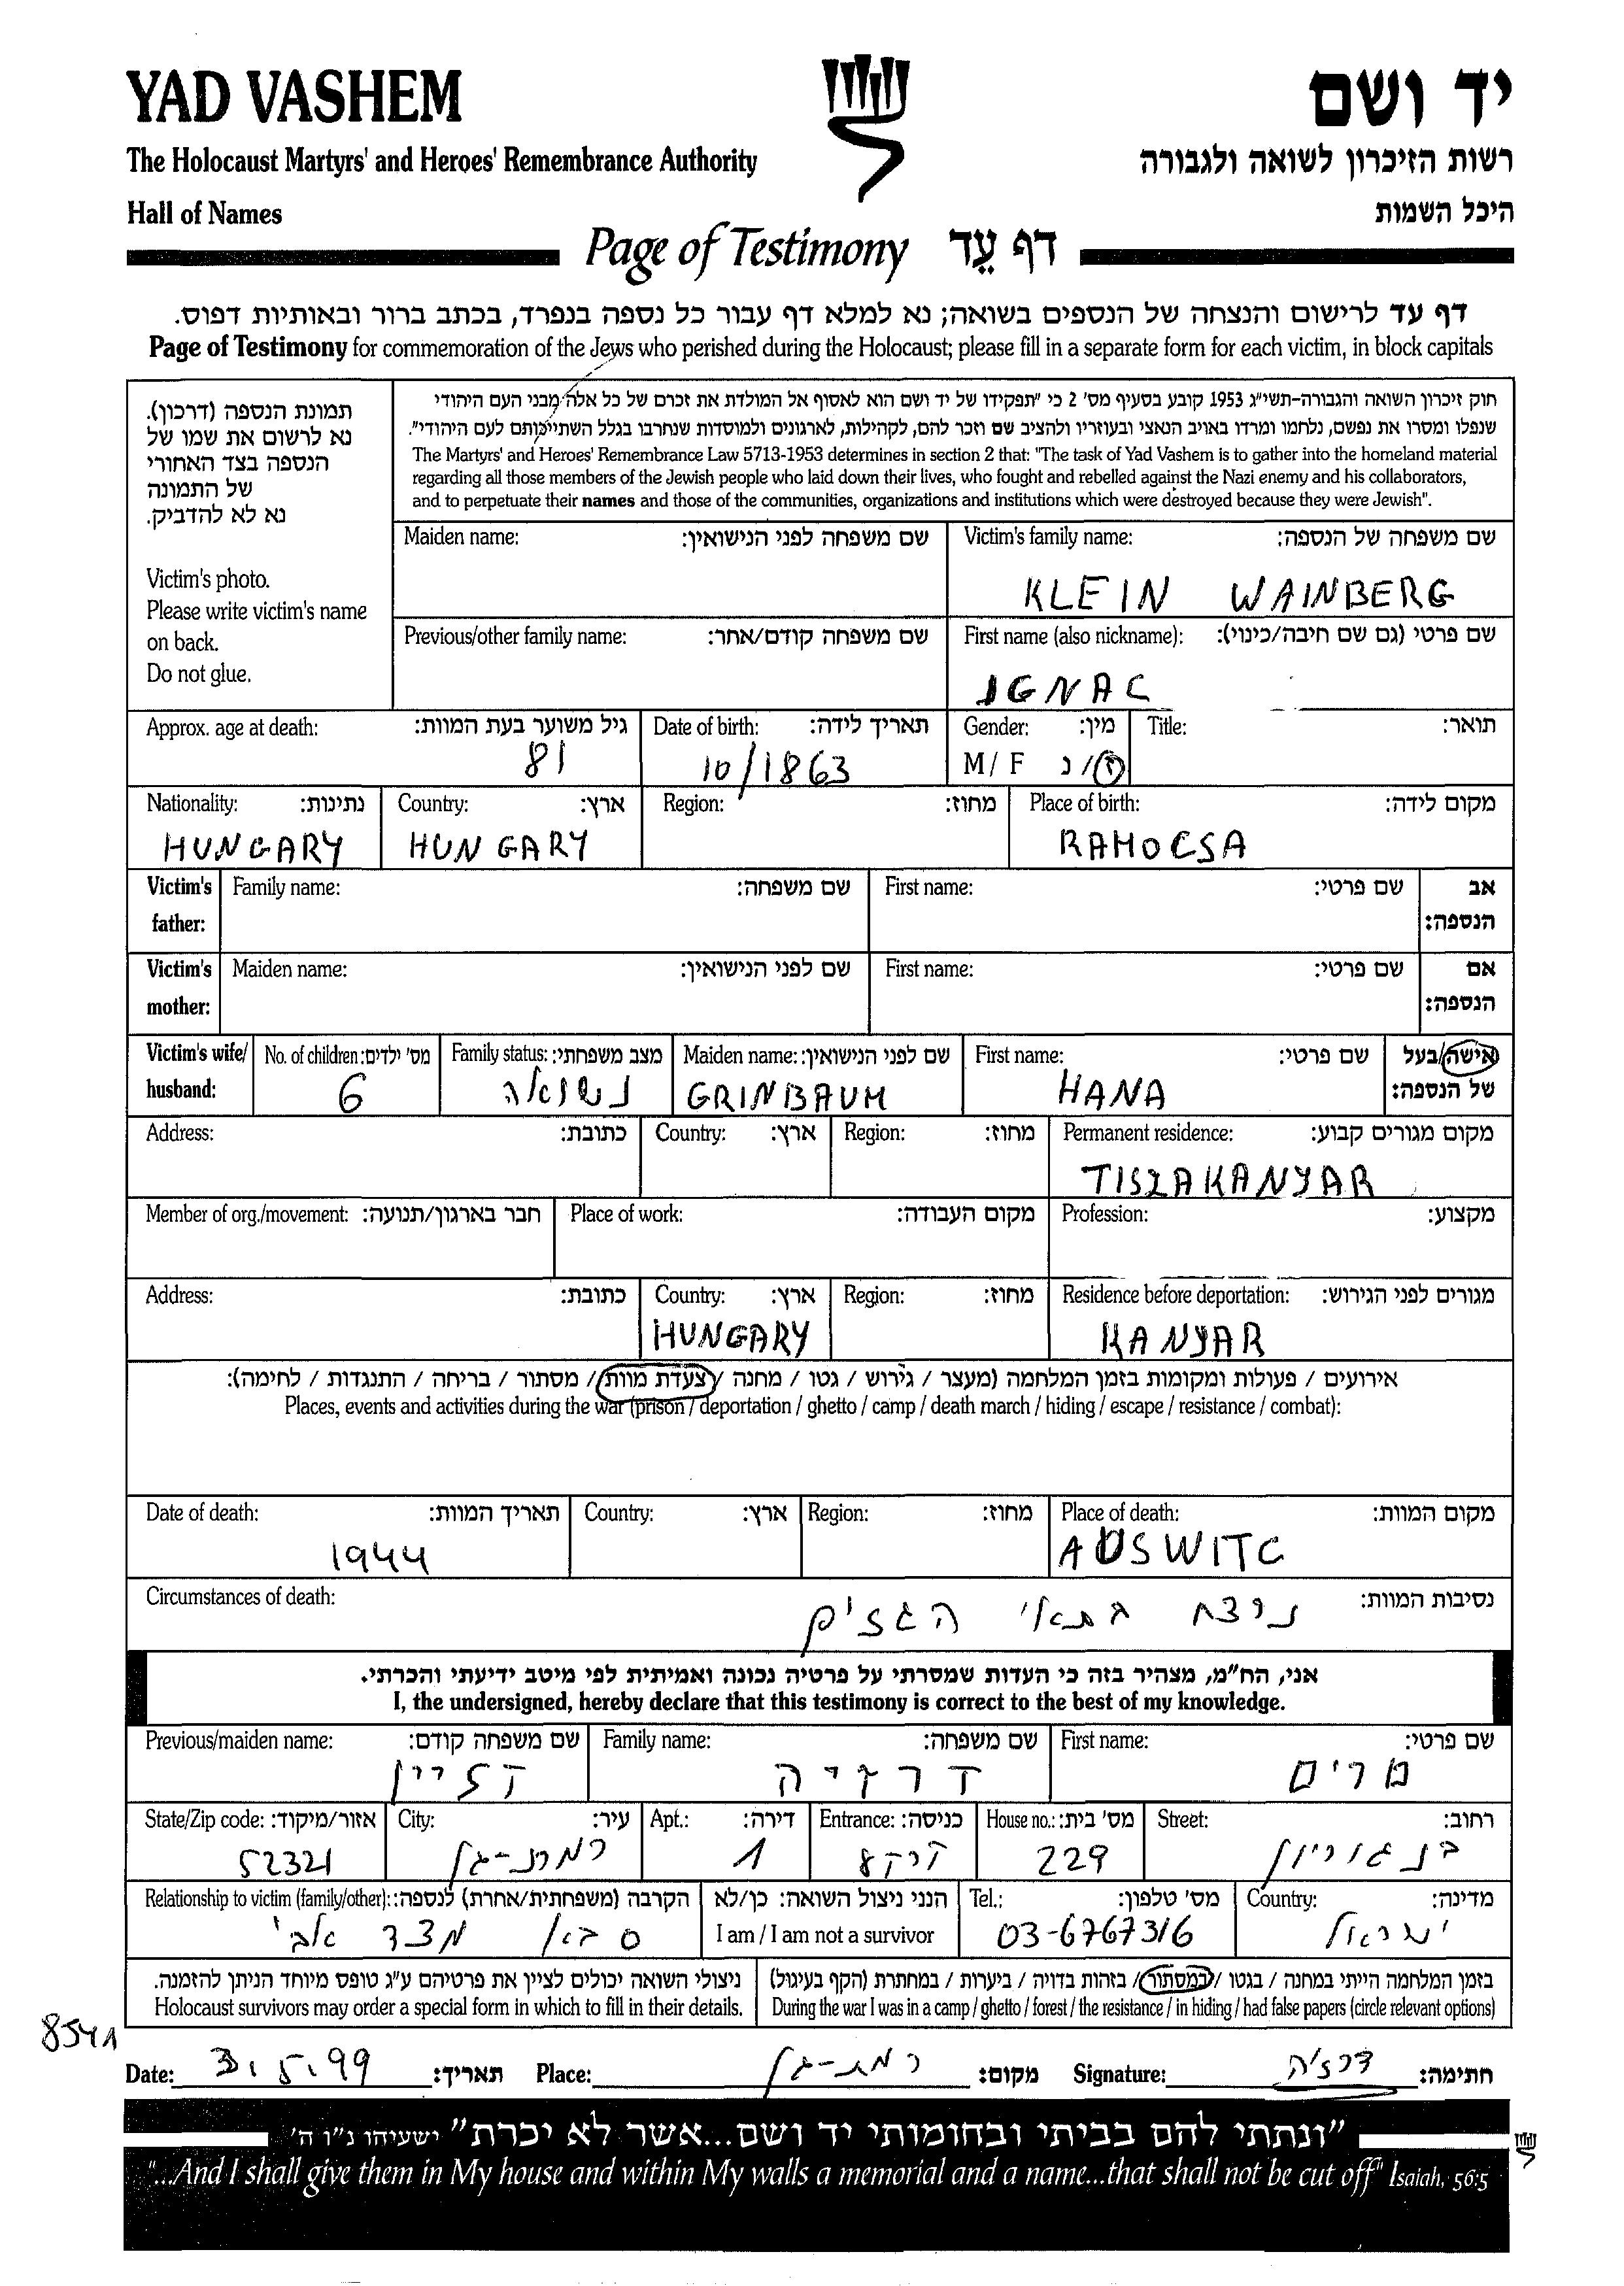 YAD VASHEM
יד ושם
The Holocaust Martyrs' and Heroes' Remembrance Authority
רשות הזיכרון לשואה ולגבורה
Hall of Names
היכל השמות
Page of Testimony דף עֵד
דף עד לרישום והנצחה של הנספים בשואה; נא למלא דף עבור כל נספה בנפרד, בכתב ברור ובאותיות דפוס.
Page of Testimony for commemoration of the Jews who perished during the Holocaust; please fill in a separate form for each victim, in block capitals
תמונת הנספה (דרכון).
נא לרשום את שמו של
הנספה בצד האחורי
של התמונה
נא לא להדביק.
Victim's photo.
Please write victim's name
on back.
Do not glue.
חוק זיכרון השואה והגבורה-תשי"ג 1953 קובע בסעיף מס' 2 כי "תפקידו של יד ושם הוא לאסוף אל המולדת את זכרם של כל אלה מבני העם היהודי
שנפלו ומסרו את נפשם, נלחמו ומרדו באויב הנאצי ובעוזריו ולהציב שם וזכר להם, לקהילות, לארגונים ולמוסדות שנחרבו בגלל השתייכותם לעם היהודי".
The Martyrs' and Heroes' Remembrance Law 5713-1953 determines in section 2 that: "The task of Yad Vashem is to gather into the homeland material
regarding all those members of the Jewish people who laid down their lives, who fought and rebelled against the Nazi enemy and his collaborators,
and to perpetuate their names and those of the communities, organizations and institutions which were destroyed because they were Jewish".
Maiden name: שם משפחה לפני הנישואין: Victim's family name: שם משפחה של הנספה:
KLEIN WAINBERG
Previous/other family name: שם משפחה קודם/אחר: First name (also nickname): שם פרטי (גם שם חיבה/כינוי):
IGNAC
Approx. age at death: גיל משוער בעת המוות: Date of birth: תאריך לידה: Gender: מין: Title: תואר:
81 10/1863 M / F ז/נ
Nationality: נתינות: Country: ארץ: Region: מחוז: Place of birth: מקום לידה:
HUNGARY HUNGARY RAMOCSA
Victim's father: Family name: שם משפחה: First name: שם פרטי: אב הנספה:
Victim's mother: Maiden name: שם לפני הנישואין: First name: שם פרטי: אם הנספה:
Victim's wife/ husband: No. of children: מס' ילדים: Family status: מצב משפחתי: Maiden name: שם לפני הנישואין: First name: שם פרטי: אישה/בעל של הנספה:
6 נשואה GRINBAUM HANA
Address: כתובת: Country: ארץ: Region: מחוז: Permanent residence: מקום מגורים קבוע:
TISZAKANYAR
Member of org./movement: חבר בארגון/תנועה: Place of work: מקום העבודה: Profession: מקצוע:
Address: כתובת: Country: ארץ: Region: מחוז: Residence before deportation: מגורים לפני הגירוש:
HUNGARY KANYAR
אירועים / פעולות ומקומות בזמן המלחמה (מעצר / גירוש / גטו / מחנה / צעדת מוות / מסתור / בריחה / התנגדות / לחימה):
Places, events and activities during the war (prison / deportation / ghetto / camp / death march / hiding / escape / resistance / combat):
Date of death: תאריך המוות: Country: ארץ: Region: מחוז: Place of death: מקום המוות:
1944 AUSWITC
Circumstances of death: נסיבות המוות:
נרצח בתאי הגזים
אני, הח"מ, מצהיר בזה כי העדות שמסרתי על פרטיה נכונה ואמיתית לפי מיטב ידיעתי והכרתי.
I, the undersigned, hereby declare that this testimony is correct to the best of my knowledge.
Previous/maiden name: שם משפחה קודם: Family name: שם משפחה: First name: שם פרטי:
דרזיה מרים
State/Zip code: אזור/מיקוד: City: עיר: Apt.: דירה: Entrance: כניסה: House no.: מס' בית: Street: רחוב:
52321 רמת-גן 1 קרקע 229 בן גוריון
Relationship to victim (family/other): הקרבה (משפחתית/אחרת) לנספה: הנני ניצול השואה: כן/לא Tel.: מס' טלפון: Country: מדינה:
סבא מצד אבי I am / I am not a survivor 03-6767316 ישראל
ניצולי השואה יכולים לציין את פרטיהם ע"ג טופס מיוחד הניתן להזמנה. בזמן המלחמה הייתי במחנה / בגטו / במסתור / בזהות בדויה / ביערות / במחתרת (הקף בעיגול)
Holocaust survivors may order a special form in which to fill in their details. During the war I was in a camp / ghetto / forest / the resistance / in hiding / had false papers (circle relevant options)
8541
Date: 3.5.99 תאריך: Place: רמת-גן מקום: Signature: דרזיה חתימה:
"ונתתי להם בביתי ובחומותי יד ושם...אשר לא יכרת" ישעיהו נ"ו ה'
"...And I shall give them in My house and within My walls a memorial and a name...that shall not be cut off" Isaiah, 56:5